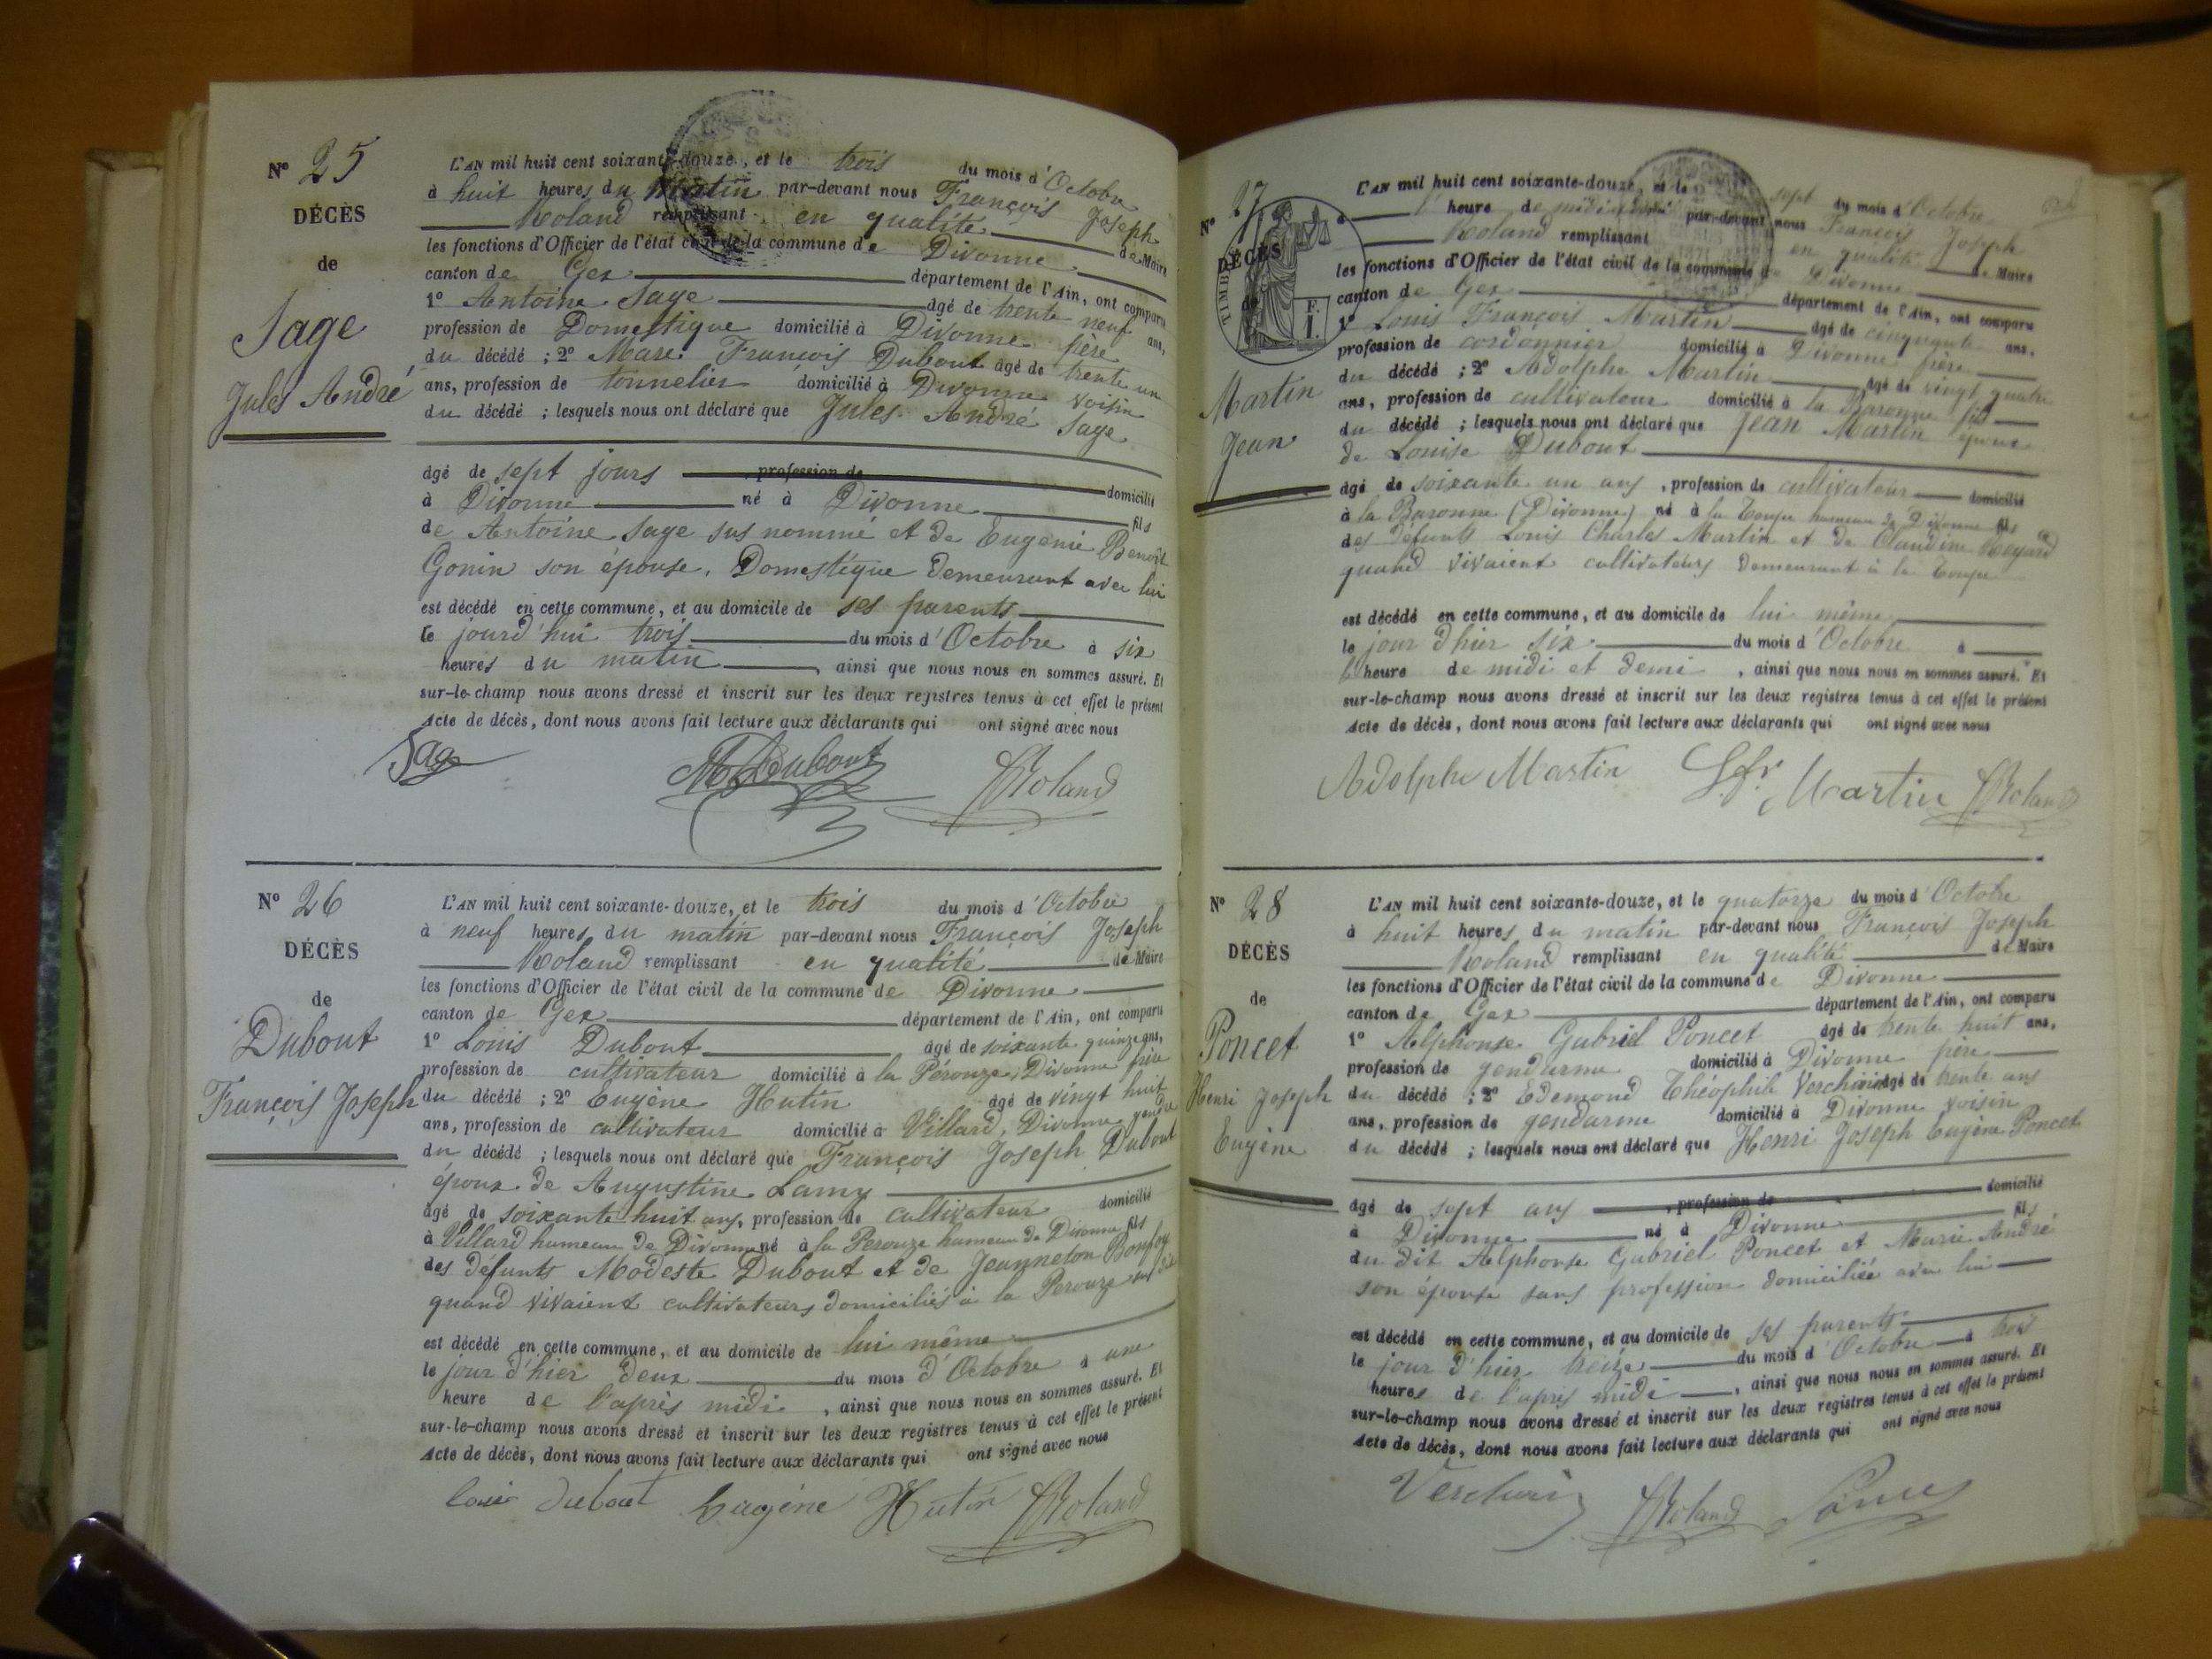 N° 25
DÉCÈS
de
Sage
Jules André
L'AN mil huit cent soixante-douze, et le trois du mois d'Octobre
à huit heures du matin par-devant nous François Joseph
Roland remplissant en qualité de Maire
les fonctions d'Officier de l'état civil de la commune de Divonne
canton de Gex département de l'Ain, ont comparu
1° Antoine Sage âgé de trente neuf ans,
profession de Domestique domicilié à Divonne père
du décédé ; 2° Marc François Dubout âgé de trente un
ans, profession de tonnelier domicilié à Divonne voisin
du décédé ; lesquels nous ont déclaré que Jules André Sage
âgé de sept jours profession de domicilié
à Divonne né à Divonne fils
de Antoine Sage sus nommé et de Eugénie Benoit
Gonin son épouse, Domestique demeurant avec lui
est décédé en cette commune, et au domicile de ses parents
le jourd'hui trois du mois d'Octobre à six
heures du matin, ainsi que nous nous en sommes assuré. Et
sur-le-champ nous avons dressé et inscrit sur les deux registres tenus à cet effet le présent
Acte de décès, dont nous avons fait lecture aux déclarants qui ont signé avec nous
Sage M Dubout Roland
N° 26
DÉCÈS
de
Dubout
François Joseph
L'AN mil huit cent soixante-douze, et le trois du mois d'Octobre
à neuf heures du matin par-devant nous François Joseph
Roland remplissant en qualité de Maire
les fonctions d'Officier de l'état civil de la commune de Divonne
canton de Gex département de l'Ain, ont comparu
1° Louis Dubout âgé de soixante quinze ans,
profession de cultivateur domicilié à la Pérouze, Divonne frère
du décédé ; 2° Eugène Hutin âgé de vingt huit
ans, profession de cultivateur domicilié à Villard, Divonne gendre
du décédé ; lesquels nous ont déclaré que François Joseph Dubout
époux de Augustine Lamy
âgé de soixante huit ans, profession de cultivateur domicilié
à Villard hameau de Divonne né à la Perouze hameau de Divonne fils
des defunts Modeste Dubout et de Jeanneton Bonfoy
quand vivaient cultivateurs domiciliés à la Perouze
est décédé en cette commune, et au domicile de lui même
le jour d'hier deux du mois d'Octobre à une
heure de l'après midi, ainsi que nous nous en sommes assuré. Et
sur-le-champ nous avons dressé et inscrit sur les deux registres tenus à cet effet le présent
Acte de décès, dont nous avons fait lecture aux déclarants qui ont signé avec nous
Louis dubout Eugéne Hutin Roland
N° 27
DÉCÈS
de
TIMBRE
F.
1.
Martin
Jean
L'AN mil huit cent soixante-douze, et le sept du mois d'Octobre
à l' heure de midi par-devant nous François Joseph
Roland remplissant en qualité de Maire
les fonctions d'Officier de l'état civil de la commune de Divonne
canton de Gex département de l'Ain, ont comparu
1° Louis François Martin âgé de cinquante ans,
profession de cordonnier domicilié à Divonne frère
du décédé ; 2° Adolphe Martin âgé de vingt quatre
ans, profession de cultivateur domicilié à la Baronne fils
du décédé ; lesquels nous ont déclaré que Jean Martin époux
de Louise Dubout
âgé de soixante un ans, profession de cultivateur domicilié
à la Baronne (Divonne) né à la Coupe hameau de Divonne fils
des défunts Louis Charles Martin et de Claudine
quand vivaient cultivateurs demeurant à la Coupe
est décédé en cette commune, et au domicile de lui même
le jour d'hier six du mois d'Octobre à
l'heure de midi et demi, ainsi que nous nous en sommes assuré. Et
sur-le-champ nous avons dressé et inscrit sur les deux registres tenus à cet effet le présent
Acte de décès, dont nous avons fait lecture aux déclarants qui ont signé avec nous
Adolphe Martin L. fr. Martin Roland
N° 28
DÉCÈS
de
Poncet
Henri Joseph
Eugène
L'AN mil huit cent soixante-douze, et le quatorze du mois d'Octobre
à huit heures du matin par-devant nous François Joseph
Roland remplissant en qualité de Maire
les fonctions d'Officier de l'état civil de la commune de Divonne
canton de Gex département de l'Ain, ont comparu
1° Alphonse Gabriel Poncet âgé de trente huit ans,
profession de gendarme domicilié à Divonne père
du décédé ; 2° Edemond Théophile Verchain âgé de trente ans
ans, profession de gendarme domicilié à Divonne voisin
du décédé ; lesquels nous ont déclaré que Henri Joseph Eugène Poncet
âgé de sept ans profession de domicilié
à Divonne né à Divonne fils
du dit Alphonse Gabriel Poncet et Marie André
son épouse sans profession domiciliée avec lui
est décédé en cette commune, et au domicile de ses parents
le jour d'hier treize du mois d'Octobre à trois
heures de l'apres midi, ainsi que nous nous en sommes assuré. Et
sur-le-champ nous avons dressé et inscrit sur les deux registres tenus à cet effet le présent
Acte de décès, dont nous avons fait lecture aux déclarants qui ont signé avec nous
Verchain Roland Poncet